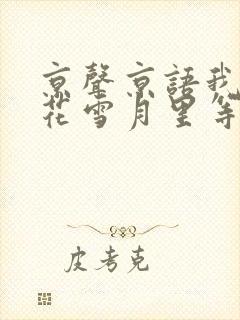 京聲京語我
花雪月里等
皮考克